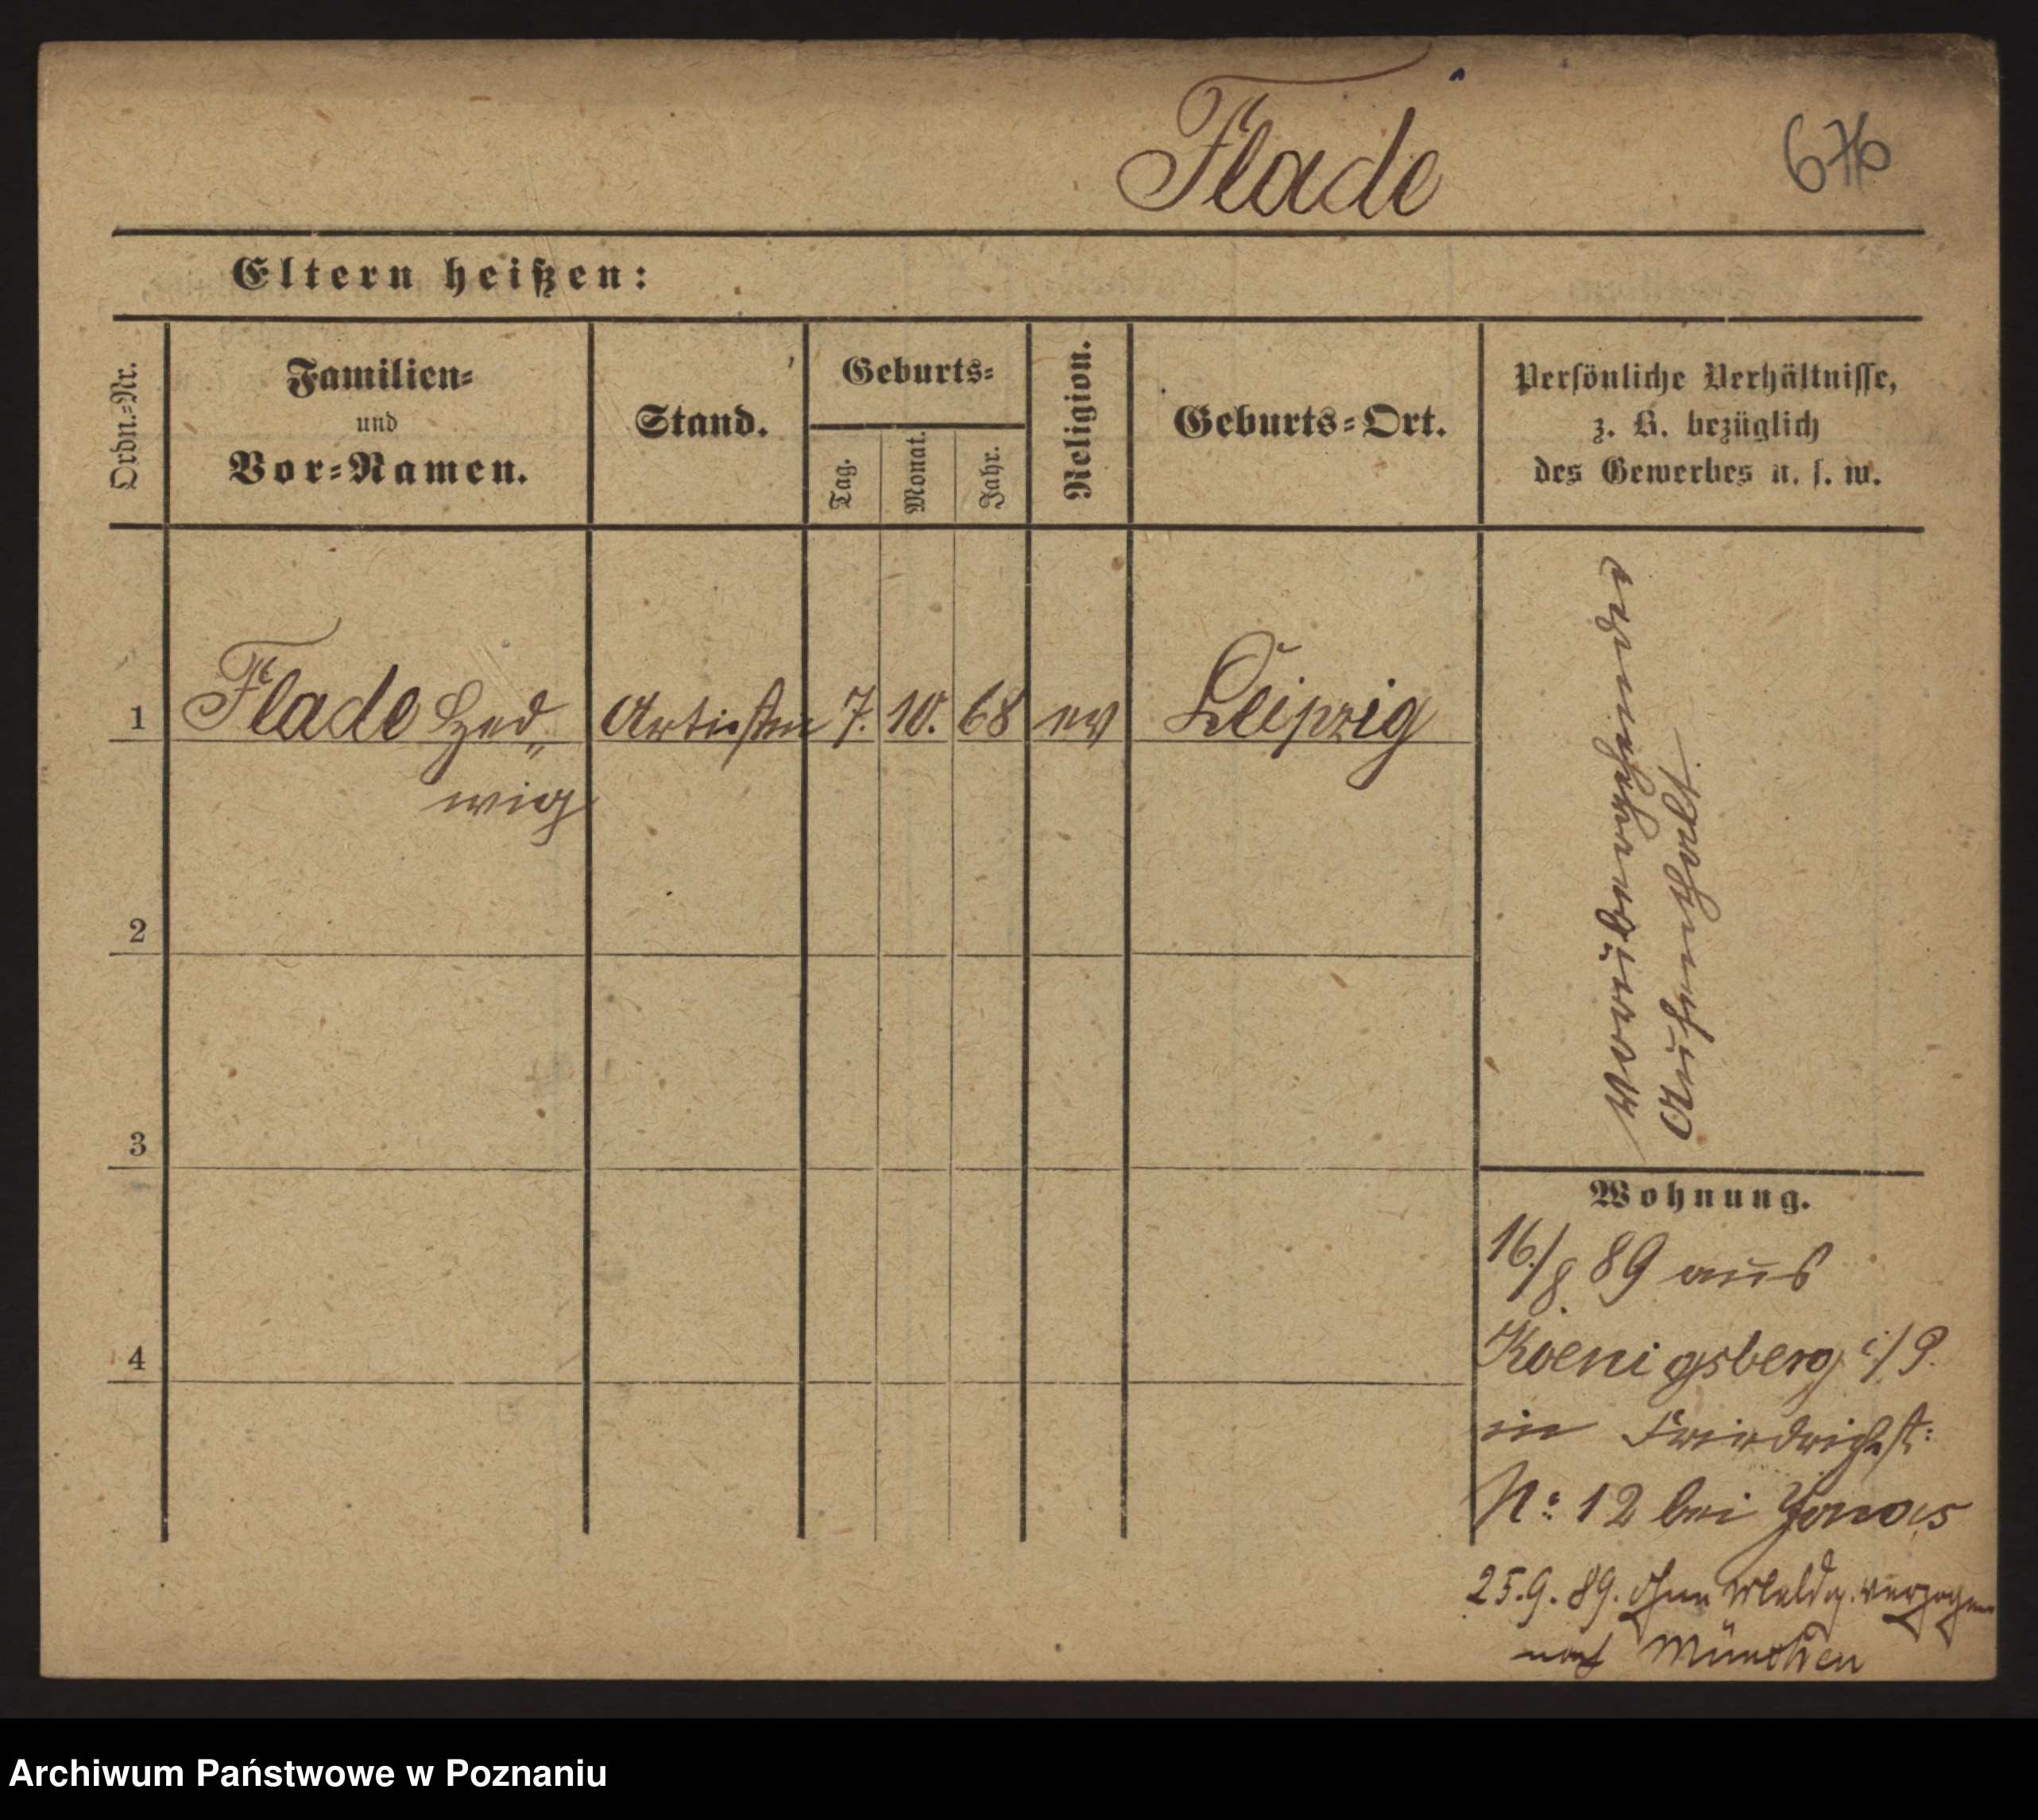 Flade
676
Eltern heißen:
Ordn.-Nr.
Familien-
und
Vor-Namen.
Stand.
Geburts-
Tag.
Monat.
Jahr.
Religion.
Geburts-Ort.
Persönliche Verhältnisse,
z. B. bezüglich
des Gewerbes u. s. w.
1 Flade Hed„ Artisten 7. 10. 68 ev Leipzig
wig
2
3
4
vorübergehender
Aufenthalt.
Wohnung.
16./8. 89 aus
Koenigsberg i/P.
in Friedrichst:
N: 12 bei
25.9.89. ohne Meldg. verzogen
nach München
Archiwum Państwowe w Poznaniu